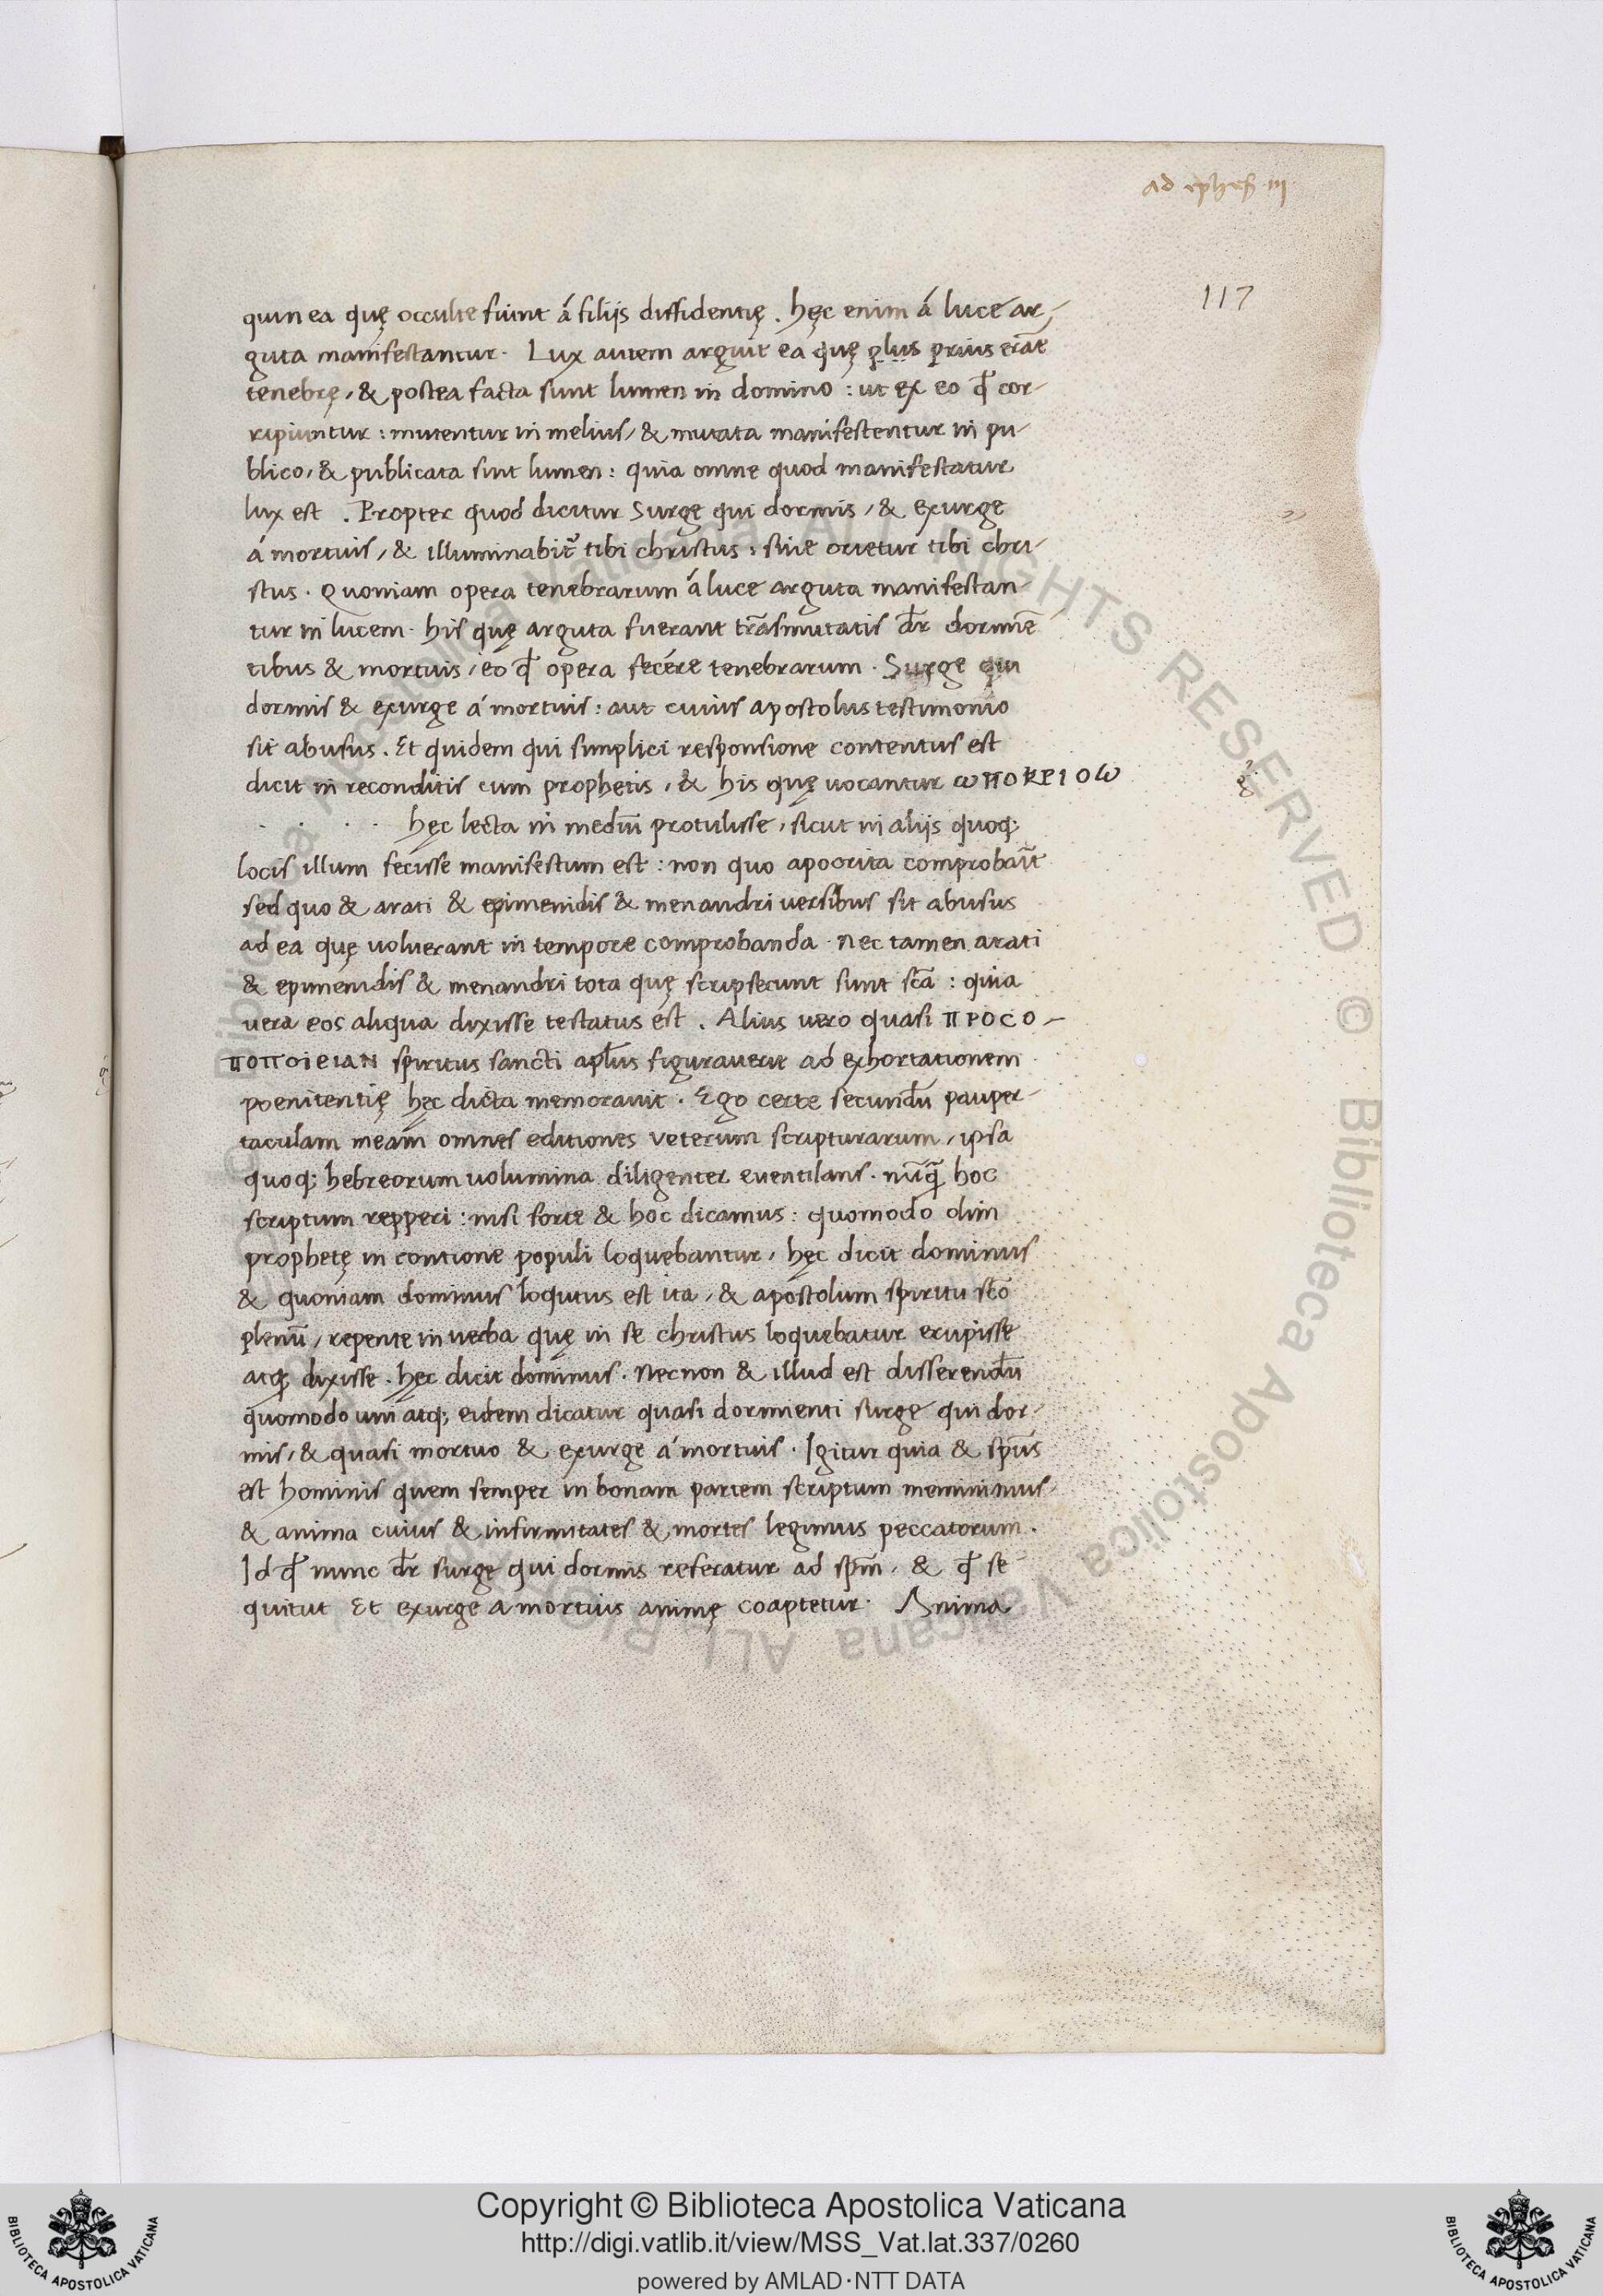 ad ephes̄ iii
117
quin ea quę occulte fiunt á filijs diffidentię . hęc enim á luce ar,
guta manifestantur . Lux autem arguit ea quę plus prius erāt
tenebrę, & postea facta sunt lumen in domino : ut ex eo q̄ cor-
ripiuntur : mutentur in melius, & mutata manifestentur in pu-
blico, & publicata sint lumen : quia omne quod manifestatur
lux est . Propter quod dicitur Surge qui dormis, & exurge
á mortuis, & illuminabit̄ tibi christus : siue orietur tibi chri-
stus . Quoniam opera tenebrarum á luce arguta manifestan-
tur in lucem . his quę arguta fuerant trāsmutatis dr̄ dormiē
tibus & mortuis, eo q̄ opera fecére tenebrarum . Surge qui
dormis & exurge á mortuis : aut cuius apostolus testimonio
sit abusus . Et quidem qui simplici responsione contentus est
dicit in reconditis eum prophetis, & his quę uocantur ωποκριοω
. . . . hęc lecta in mediū protulisse, sicut in alijs quoq;
locis illum fecisse manifestum est : non quo apocrita comprobaūt
sed quo & arati & epimenidis & menandri uersibus sit abusus
ad ea quę voluerant in tempore comprobanda . nec tamen arati
& epimenidis & menandri tota quę scripserunt sunt scā : quia
vera eos aliqua dixisse testatus est . Alius vero quasi προсο-
ποποιειαν spiritus sancti apl̄us figurauerit ad exhortationem
poenitentię hęc dicta memorauit . Ego certe secundū pauper-
taculam meam omnes editiones veterum scripturarum, ipsa
quoq; hebreorum uolumina diligenter euentilans . nūq̄ hoc
scriptum repperi : nisi forte & hoc dicamus : quomodo olim
prophetę in contione populi loquebantur, hęc dicit dominus
& quoniam dominus loqutus est ita, & apostolum spiritu scō
plenū, repente in uerba quę in se christus loquebatur erupisse
atq; dixisse . hęc dicit dominus . Nec non & illud est disserendū
quomodo uni atq; eidem dicatur quasi dormienti surge qui dor-
mis, & quasi mortuo & exurge á mortuis . Igitur quia & sp̄us
est hominis quem semper in bonam partem scriptum meminimus
& anima cuius & infirmitates & mortes legimus peccatorum .
Id q̄ nunc dr̄ surge qui dormis referatur ad sp̄m, & q̄ se-
quitut Et exurge a mortuis animę coaptetur . Anima
© Biblioteca Apostolica Vaticana ALL RIGHTS RESERVED
Copyright © Biblioteca Apostolica Vaticana
http://digi.vatlib.it/view/MSS_Vat.lat.337/0260
powered by AMLAD·NTT DATA
BIBLIOTECA APOSTOLICA VATICANA
BIBLIOTECA APOSTOLICA VATICANA